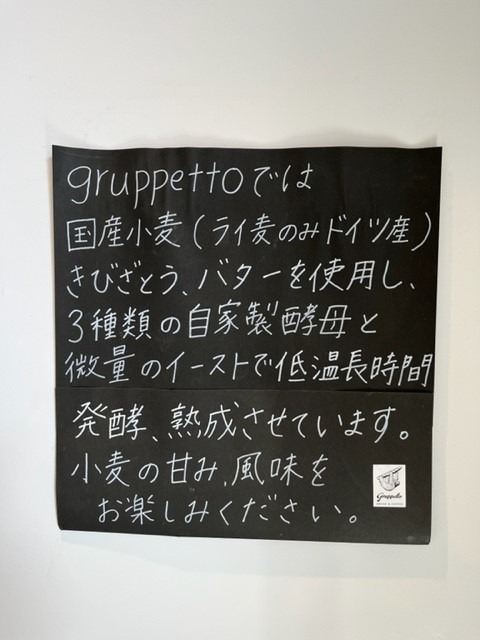 gruppettoでは
国産小麦(ライ麦のみドイツ産)
きびざとう、バターを使用し、
3種類の自家製酵母と
微量のイーストで低温長時間
発酵、熟成させています。
小麦の甘み、風味を
お楽しみください。
Gruppetto